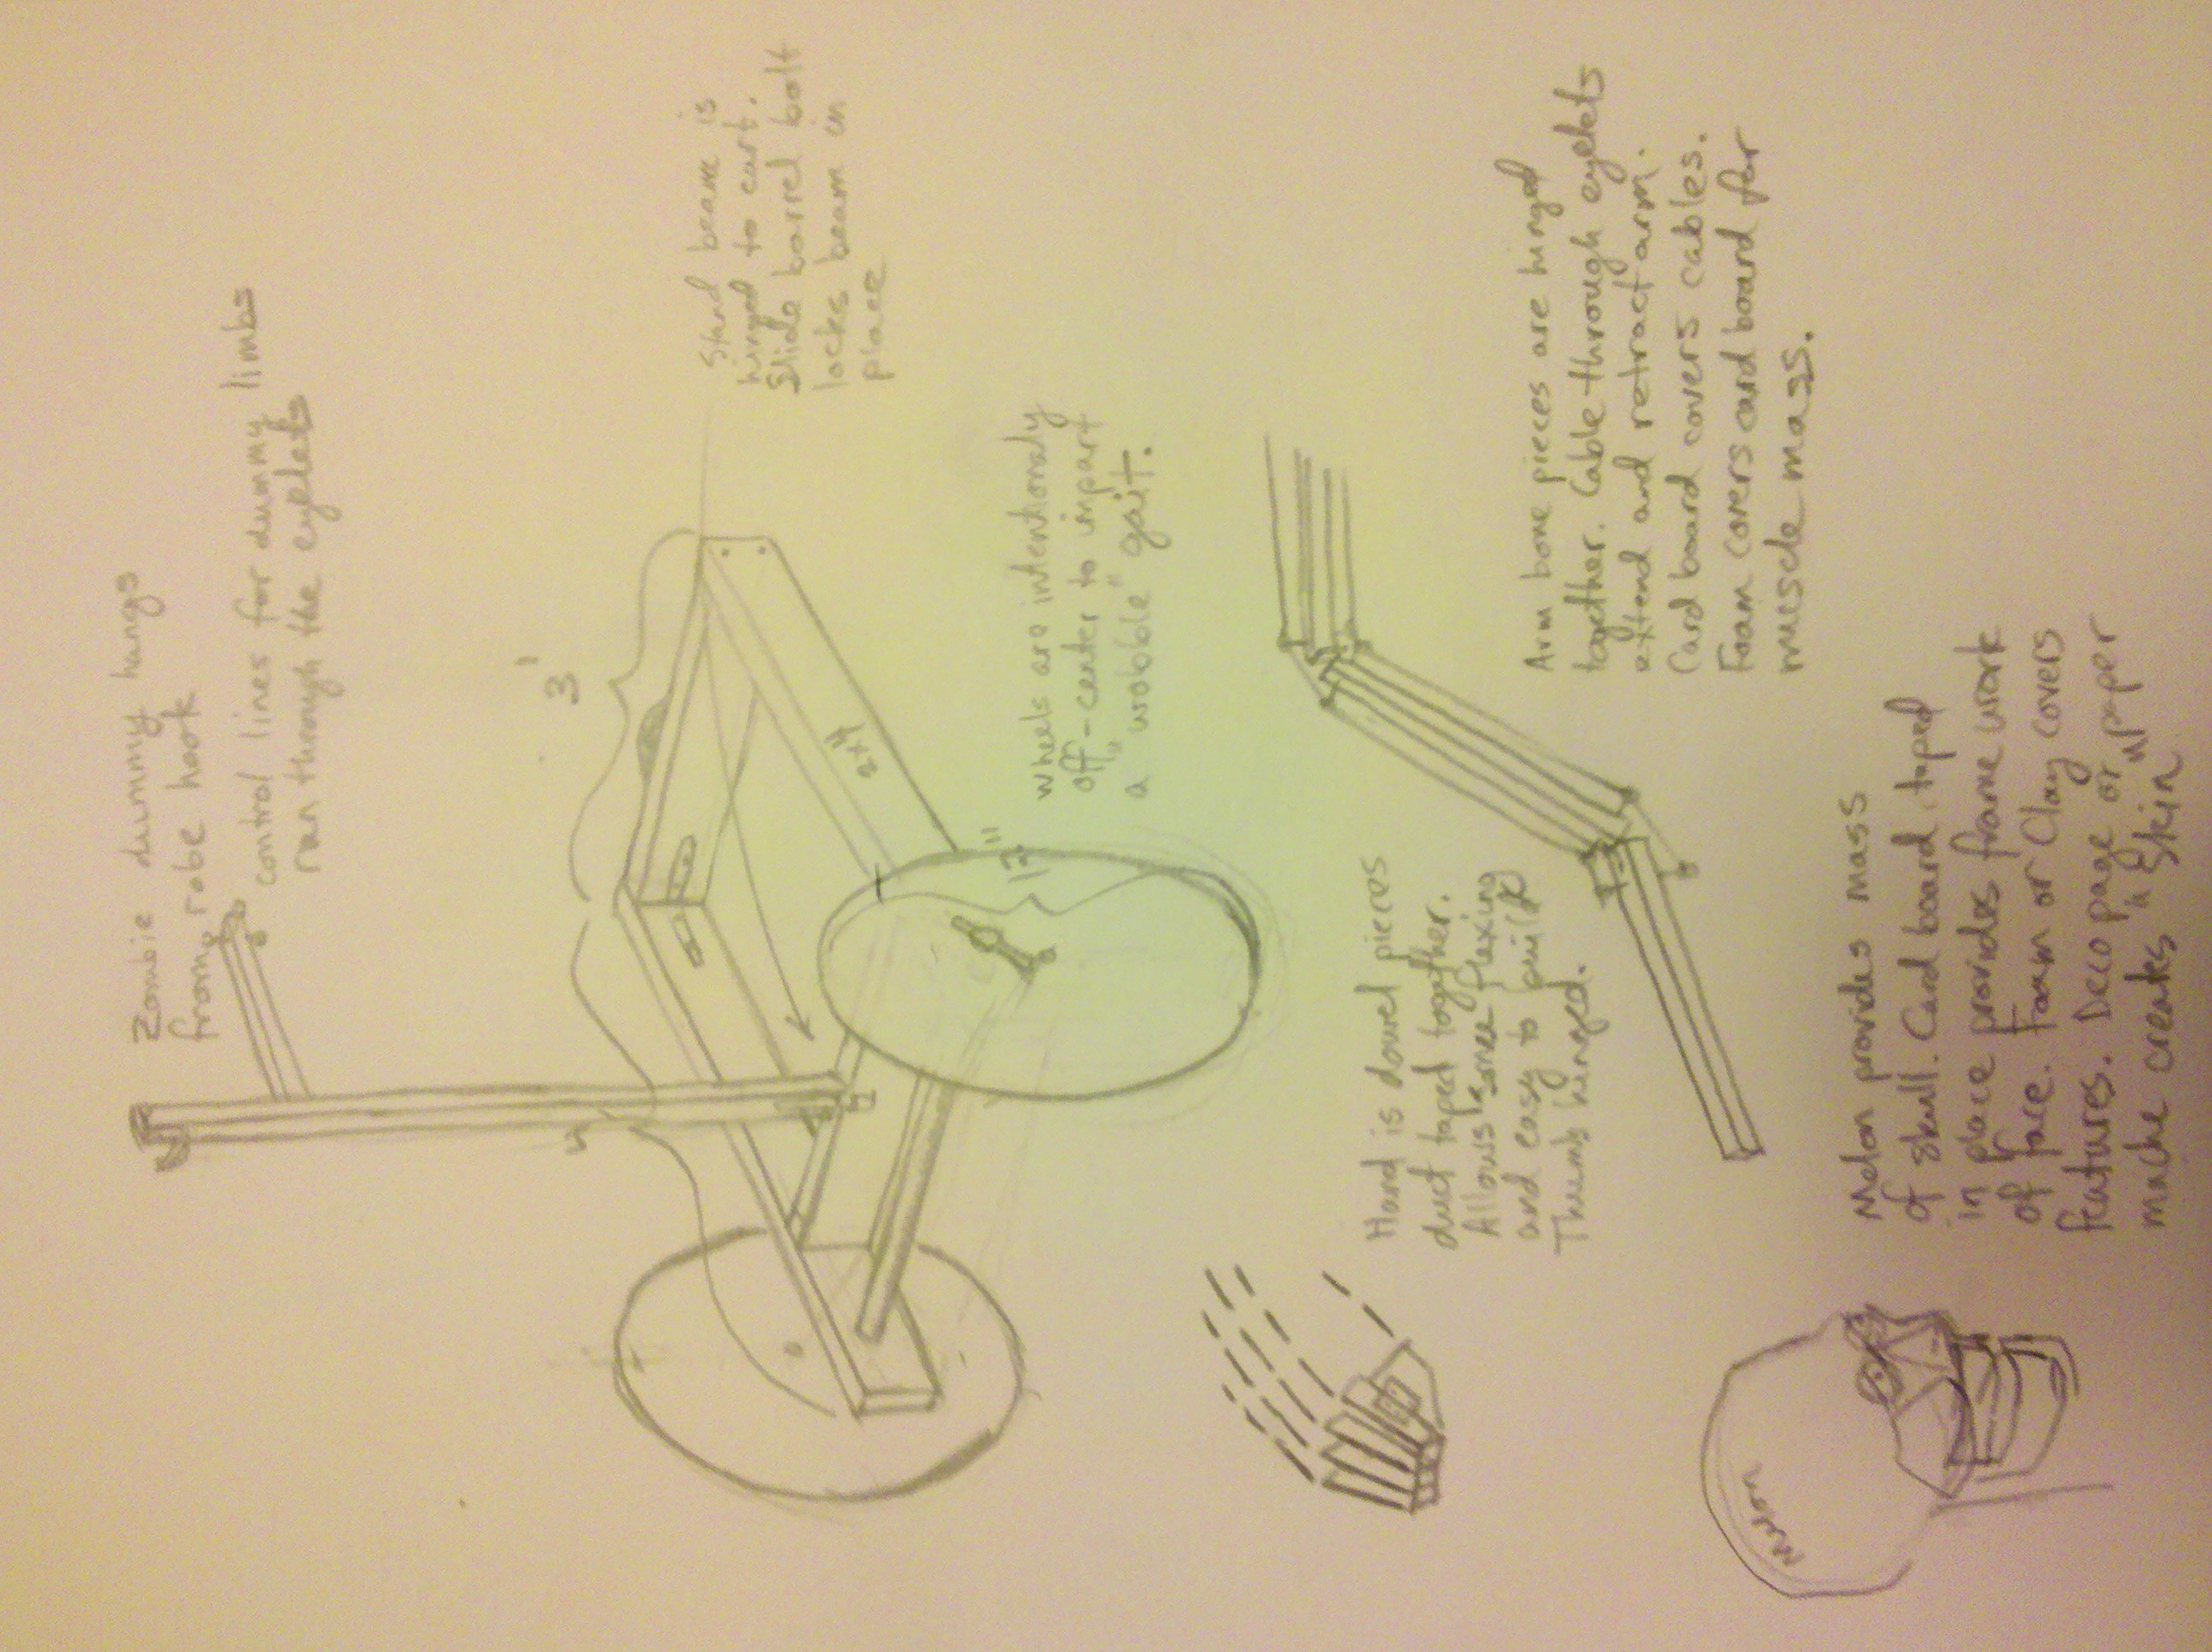 Zombie dummy hangs
from robe hook
control lines for dummy limbs
ran through the eyelets
3'
Stand beam is
hinged to cart.
Slide barrel bolt
locks beam in
place
2x4
12"
wheels are intentionaly
off-center to impart
a "wobble" gait.
Hand is dowel pieces
duct taped together.
Allows some flexing
and easy to build
Thumb hinged.
Arm bone pieces are hinged
together. Cable through eyelets
extend and retract arm.
Card board covers cables.
Foam covers card board for
muscle mass.
Melon
Melon provides mass
of skull. Card board, taped
in place provides frame work
of face. Foam or Clay covers
features. Deco page or paper
mache creates "skin"